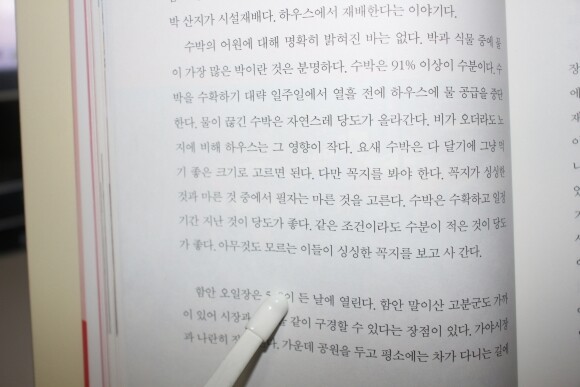 박 산지가 시설재배다. 하우스에서 재배한다는 이야기다.
수박의 어원에 대해 명확히 밝혀진 바는 없다. 박과 식물 중에 물
이 가장 많은 박이란 것은 분명하다. 수박은 91% 이상이 수분이다. 수
박을 수확하기 대략 일주일에서 열흘 전에 하우스에 물 공급을 중단
한다. 물이 끊긴 수박은 자연스레 당도가 올라간다. 비가 오더라도 노
지에 비해 하우스는 그 영향이 작다. 요새 수박은 다 달기에 그냥 먹
기 좋은 크기로 고르면 된다. 다만 꼭지를 봐야 한다. 꼭지가 싱싱한
것과 마른 것 중에서 필자는 마른 것을 고른다. 수박은 수확하고 일정
기간 지난 것이 당도가 좋다. 같은 조건이라도 수분이 적은 것이 당도
가 좋다. 아무것도 모르는 이들이 싱싱한 꼭지를 보고 사 간다.
함안 오일장은 든 날에 열린다. 함안 말이산 고분군도 가까
이 있어 시장과 같이 구경할 수 있다는 장점이 있다. 가야시장
과 나란히 가운데 공원을 두고 평소에는 차가 다니는 길에